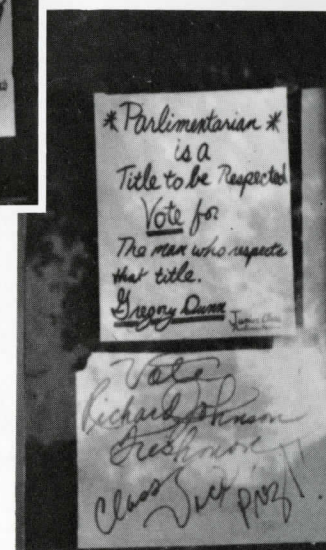 * Parlimentarian *
is a
Title to be Respected
Vote for
The man who respects
that title.
Gregory Dunn
Junior Class
Vote
Richard Johnson
Freshmore
Class Vice Prez!!